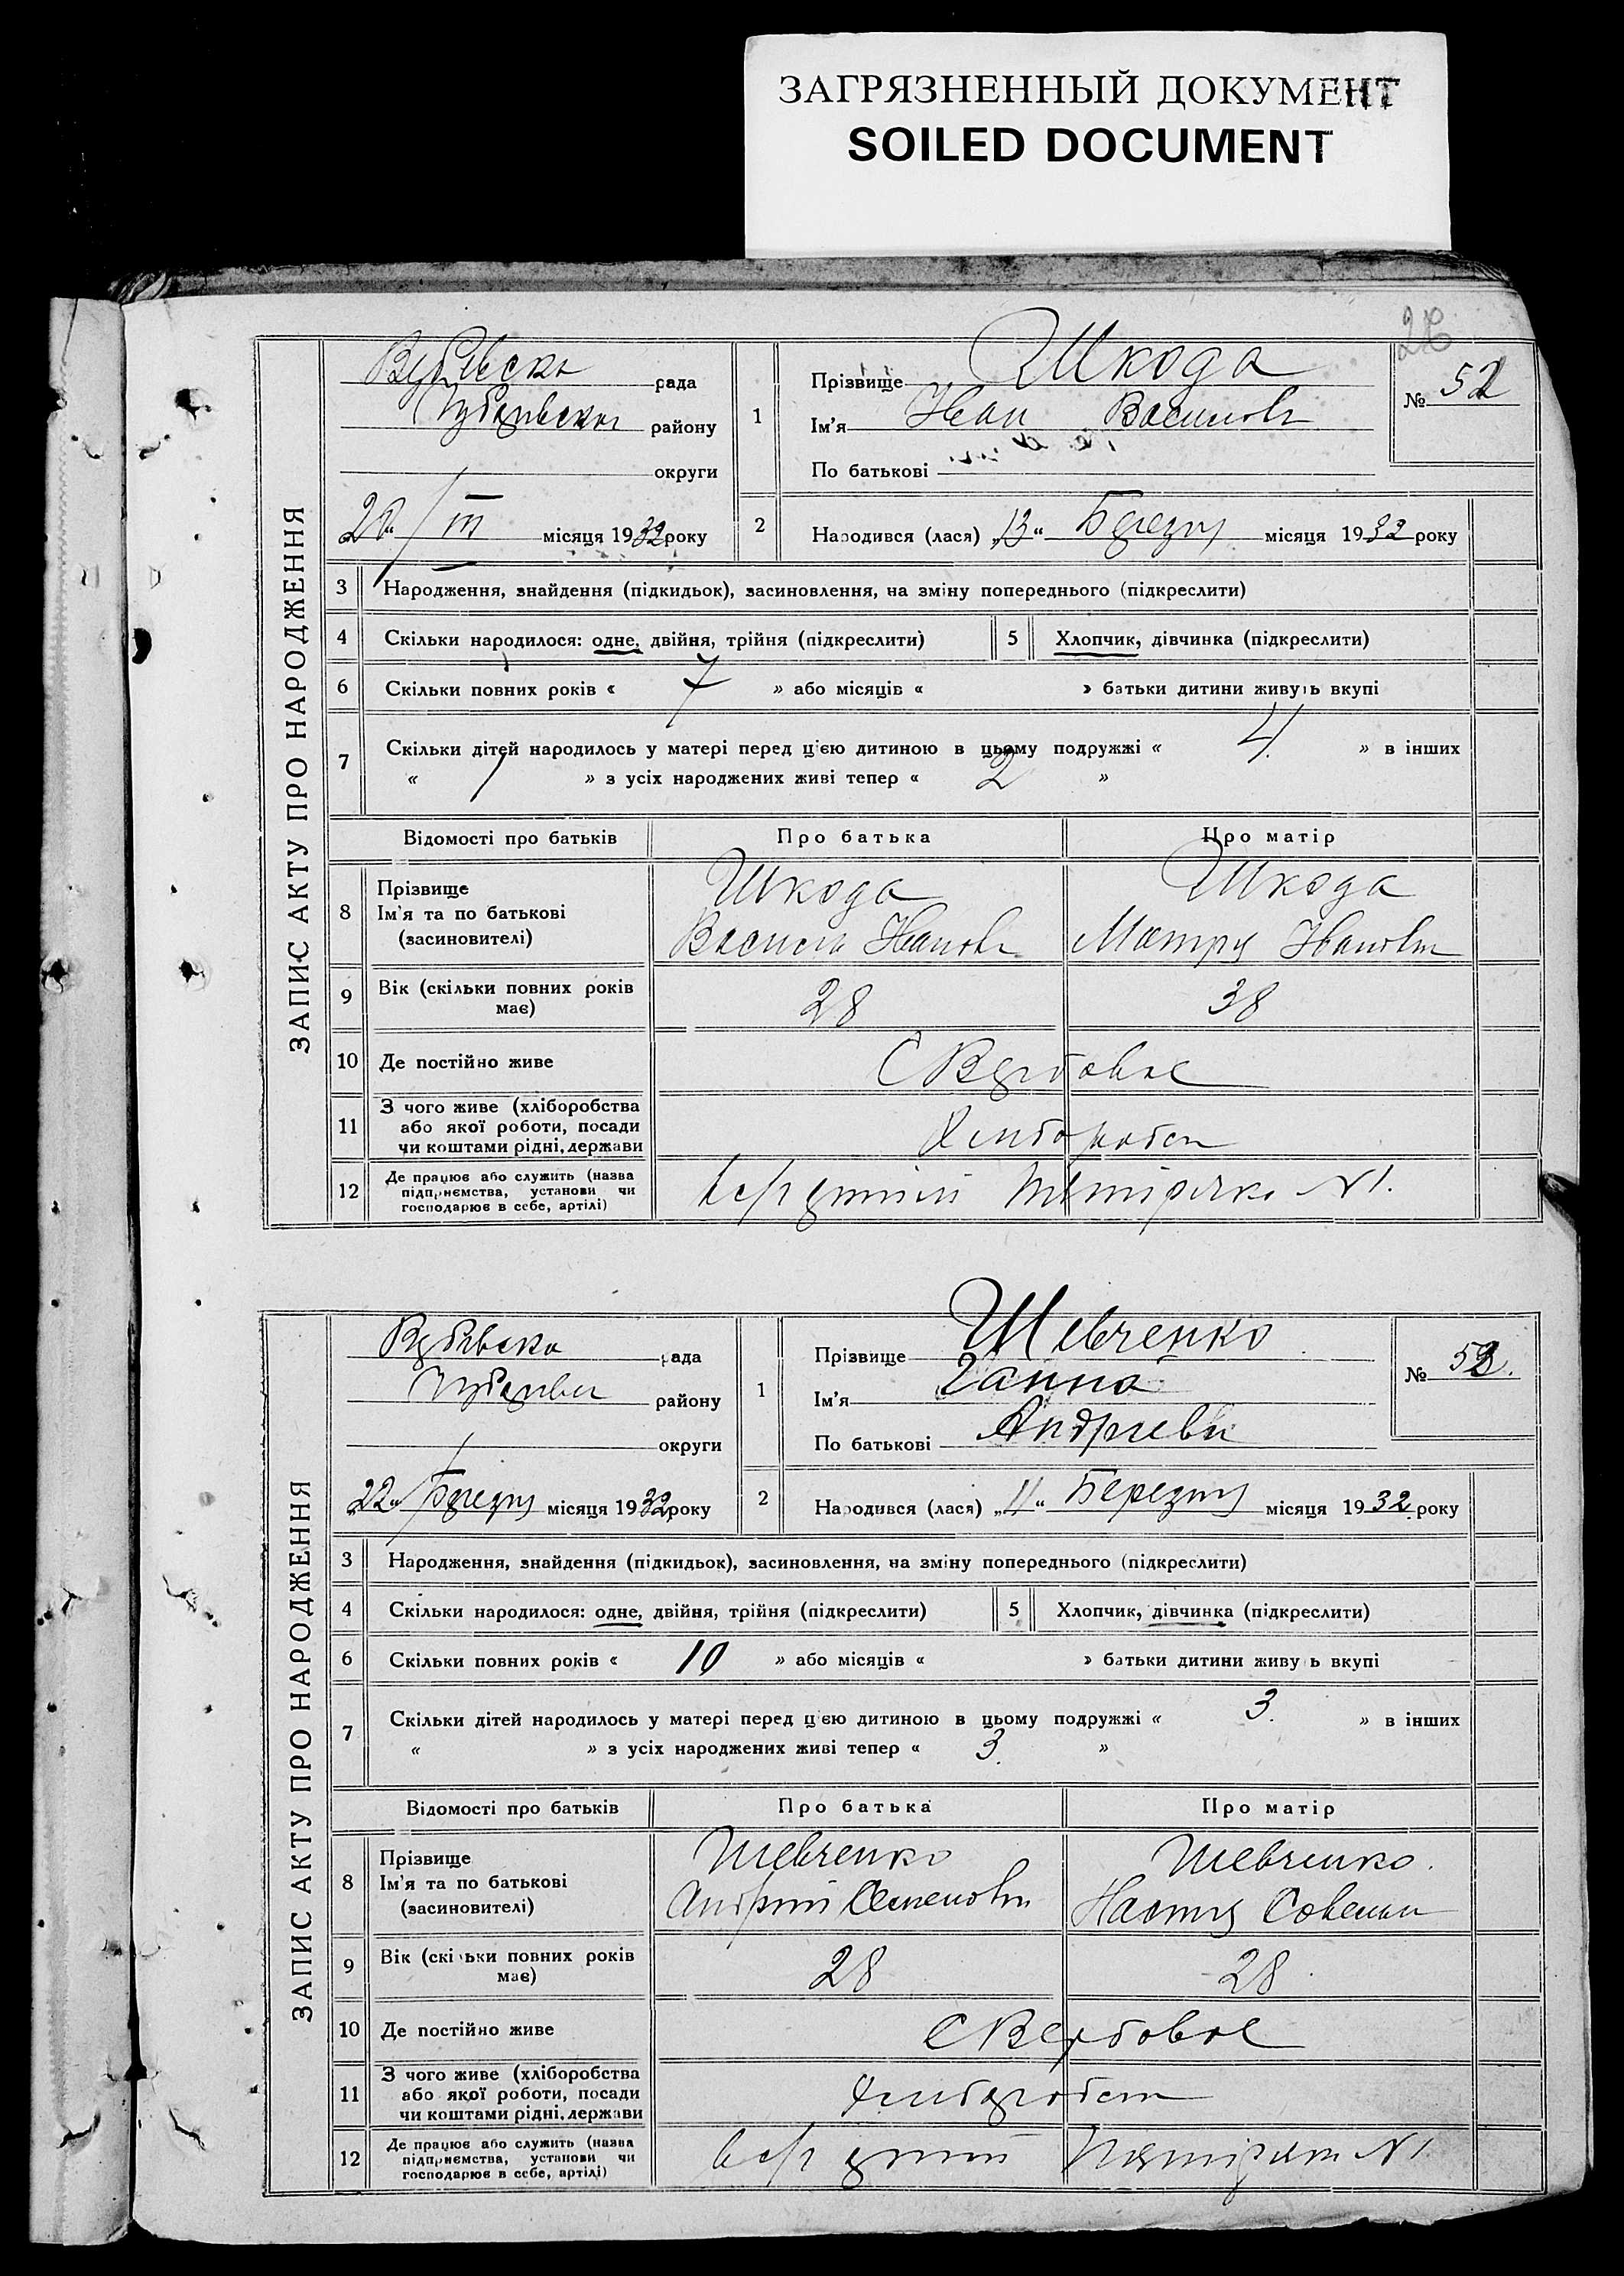 ЗАГРЯЗНЕННЫЙ ДОКУМЕНТ
SOILED DOCUMENT
ЗАПИС АКТУ ПРО НАРОДЖЕННЯ
рада
району
округи
20 / III місяця 1932 року
1
Прізвище Шкода
Ім'я Иван Васильов
По батькові
№ 52
2
Народився (лася) „13“ Березня місяця 1932 року
3 Народження, знайдення (підкидьок), засиновлення, на зміну попереднього (підкреслити)
4 Скільки народилося: одне, двійня, трійня (підкреслити) 5 Хлопчик, дівчинка (підкреслити)
6 Скільки повних років « 7 » або місяців « » батьки дитини живуть вкупі
7 Скільки дітей народилось у матері перед цією дитиною в цьому подружжі « 4. » в інших
« 1 » з усіх народжених живі тепер « 2 »
Відомості про батьків Про батька Про матір
8 Прізвище Шкода Шкода
Ім'я та по батькові
(засиновителі)
9 Вік (скільки повних років має) 28 38
10 Де постійно живе С Вербовое
11 З чого живе (хліборобства
або якої роботи, посади
чи коштами рідні, держави
12 Де працює або служить (назва
підприємства, установи чи
господарює в себе, артілі)
N 1.
ЗАПИС АКТУ ПРО НАРОДЖЕННЯ
рада
району
округи
„22“ Березня місяця 1932 року
1
Прізвище Шевченко
Ім'я Ганна
По батькові Андріевн
№ 53.
2
Народився (лася) „11“ Березня місяця 1932 року
3 Народження, знайдення (підкидьок), засиновлення, на зміну попереднього (підкреслити)
4 Скільки народилося: одне, двійня, трійня (підкреслити) 5 Хлопчик, дівчинка (підкреслити)
6 Скільки повних років « 10 » або місяців « » батьки дитини живуть вкупі
7 Скільки дітей народилось у матері перед цією дитиною в цьому подружжі « 3. » в інших
« » з усіх народжених живі тепер « 3. »
Відомості про батьків Про батька Про матір
8 Прізвище Шевченко Шевченко.
Ім'я та по батькові
(засиновителі)
9 Вік (скільки повних років має) 28 28
10 Де постійно живе С Вербовое
11 З чого живе (хліборобства
або якої роботи, посади
чи коштами рідні, держави
12 Де працює або служить (назва
підприємства, установи чи
господарює в себе, артілі)
N 1.